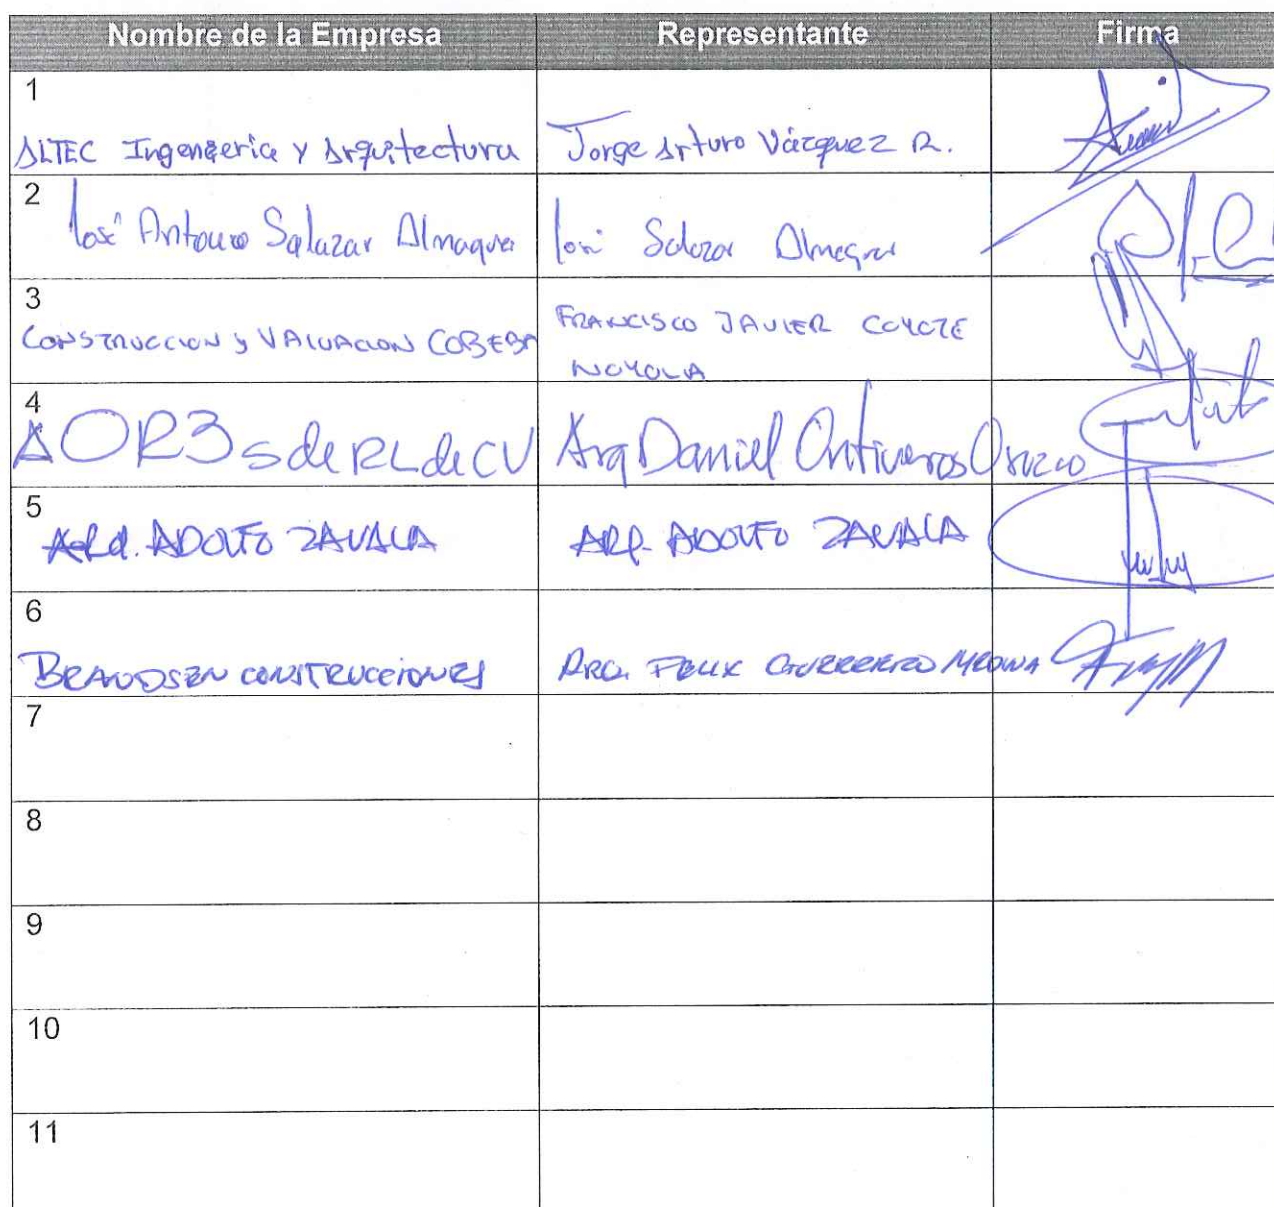 Nombre de la Empresa Representante Firma
1
ALTEC Ingenieria y Arquitectura Jorge Arturo Vázquez R.
2
José Antonio Salazar Almaguer José Salazar Almaguer
3
CONSTRUCCION y VALUACION COBEBA FRANCISCO JAVIER COYOTE
NOYOLA
4
AOR3 S de RL de CV Arq Daniel Ontiveros Orozco
5
ARQ. ADOLFO ZAVALA ARQ. ADOLFO ZAVALA
6
BRANDSEN CONSTRUCCIONES ARQ. FELIX GUERRERO MEDINA
7
8
9
10
11